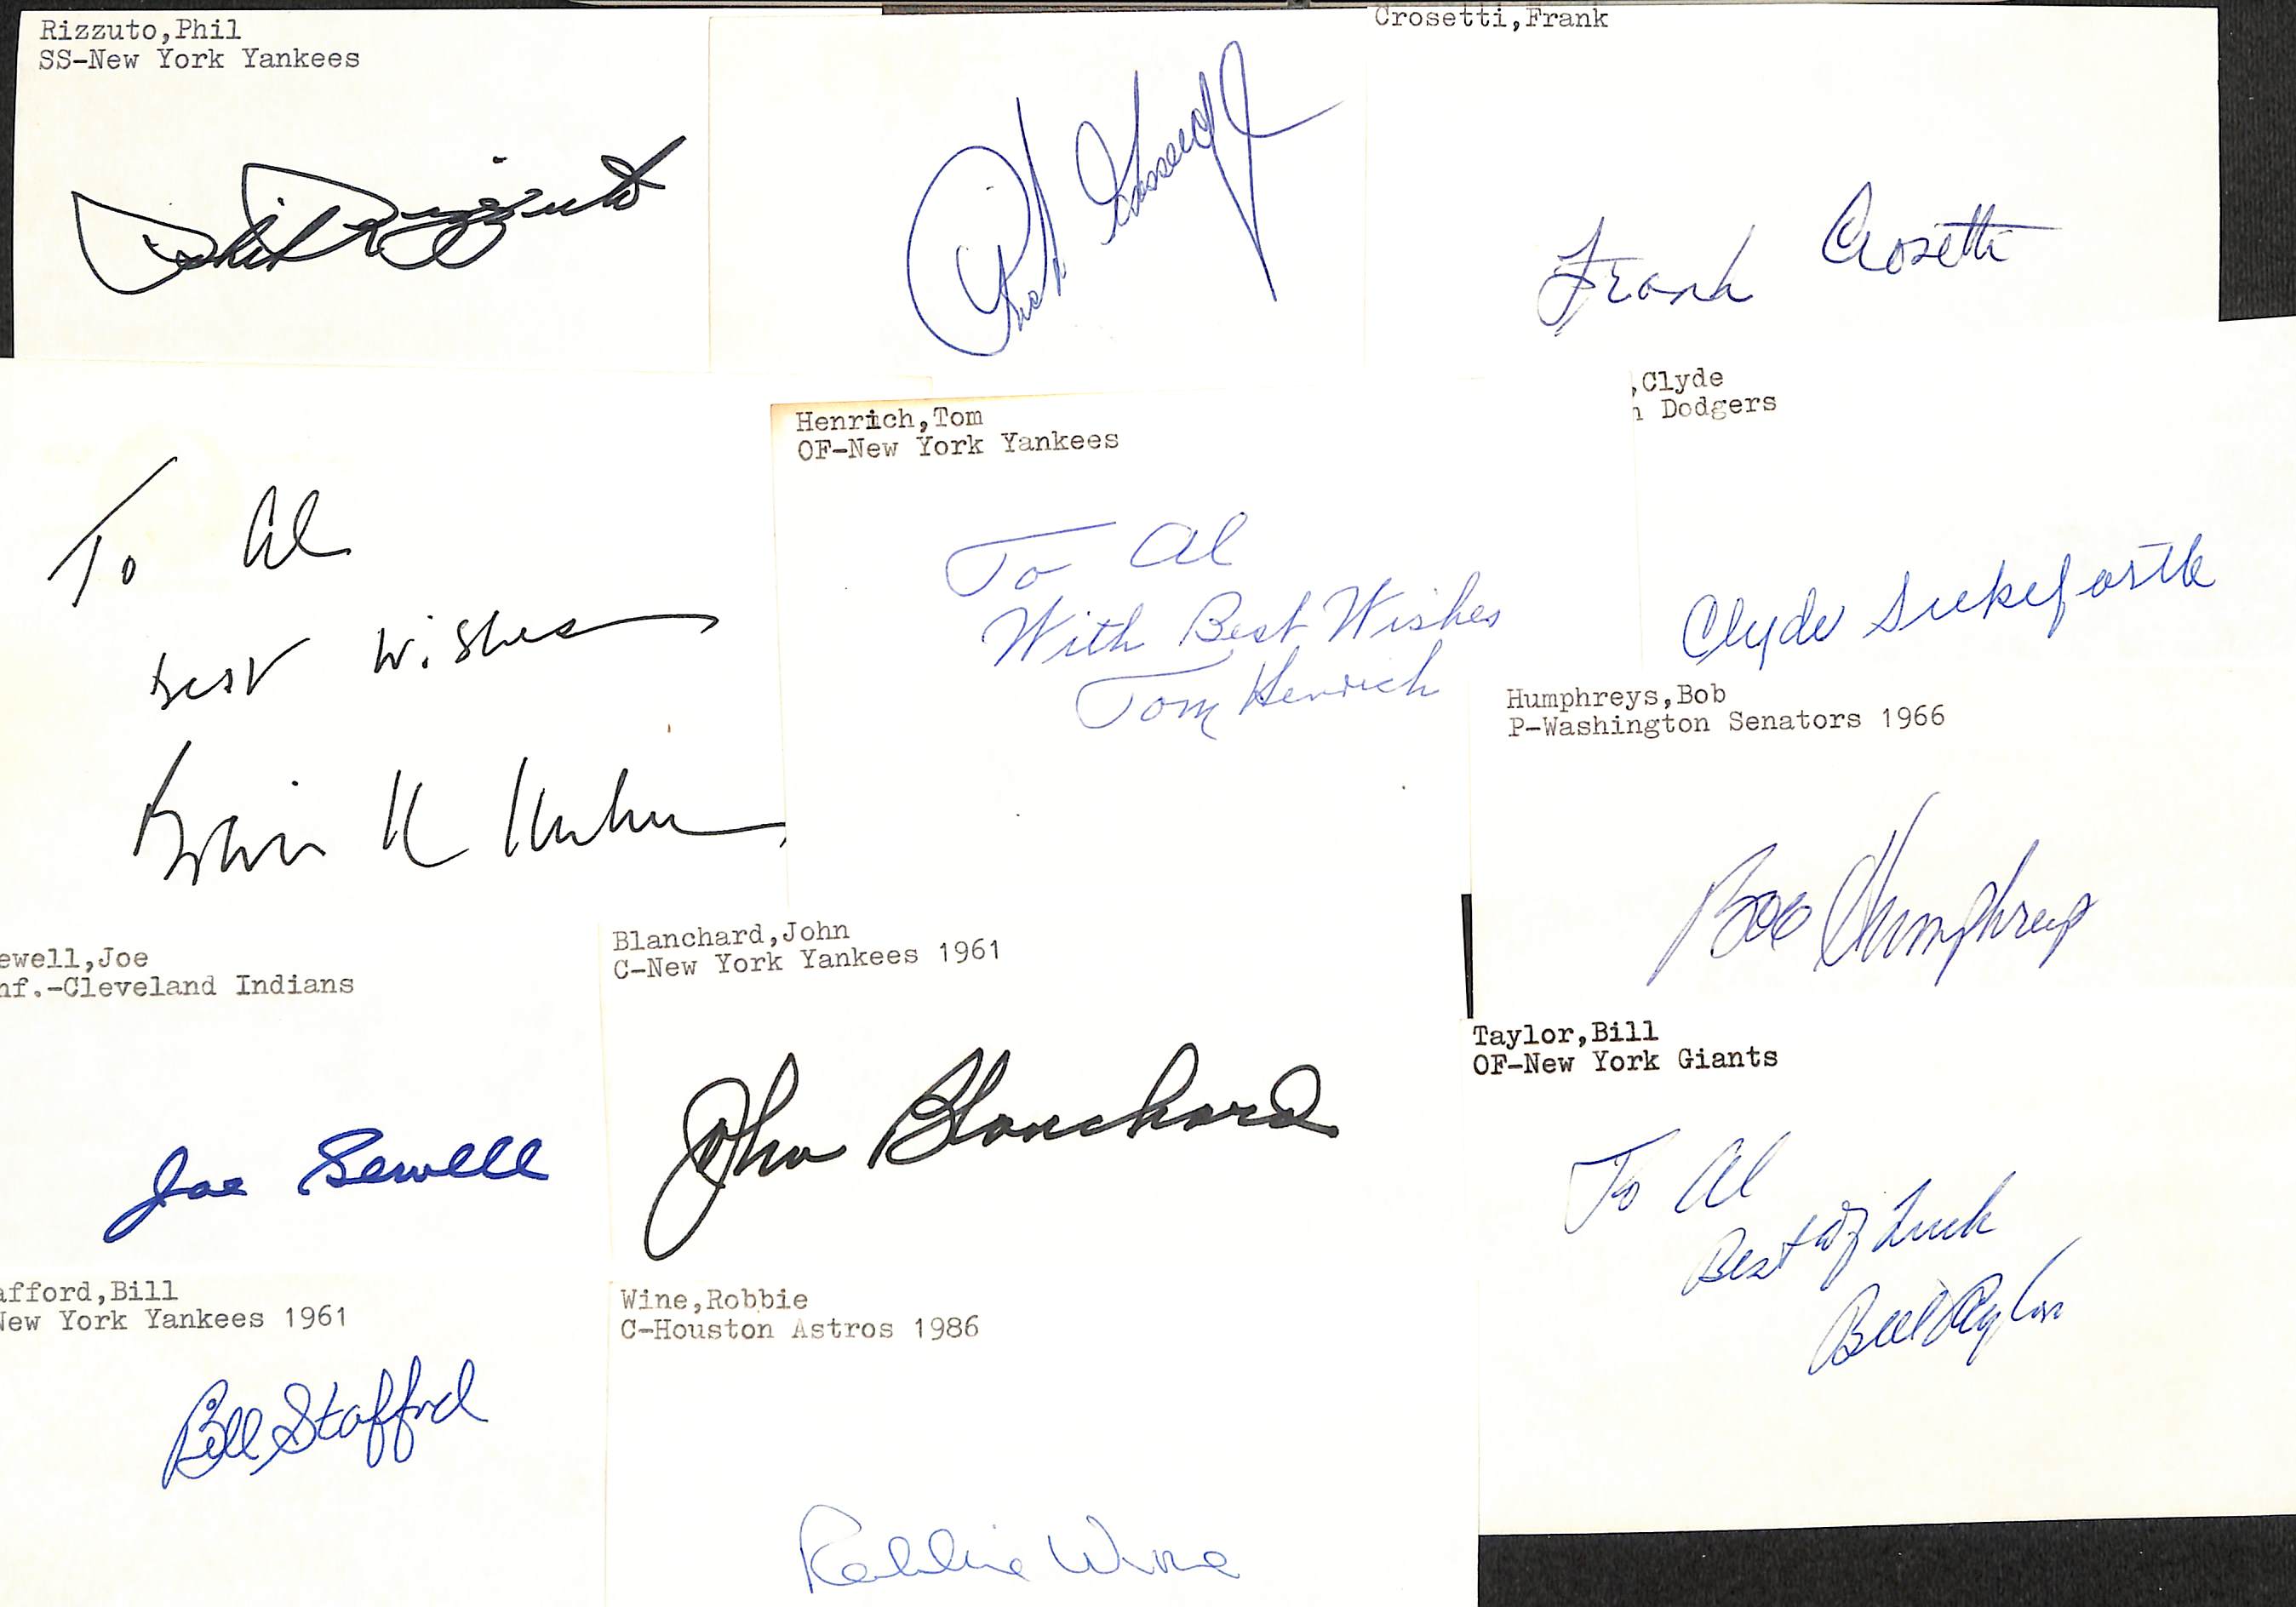 Rizzuto,Phil
SS-New York Yankees
Phil Rizzuto
Rich Gossage
Crosetti,Frank
Frank Crosetti
To Al
Best Wishes
K
Henrich,Tom
OF-New York Yankees
To Al
With Best Wishes
Tom Henrich
,Clyde
n Dodgers
Clyde Sukeforth
Humphreys,Bob
P-Washington Senators 1966
Bob Humphreys
ewell,Joe
nf.-Cleveland Indians
Joe Sewell
Blanchard,John
C-New York Yankees 1961
John Blanchard
Taylor,Bill
OF-New York Giants
To Al
Best of Luck
Bill Taylor
afford,Bill
New York Yankees 1961
Bill Stafford
Wine,Robbie
C-Houston Astros 1986
Robbie Wine